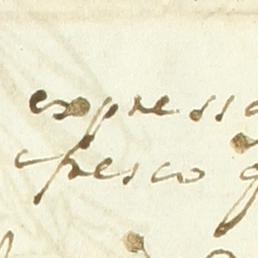 expressa
fresco